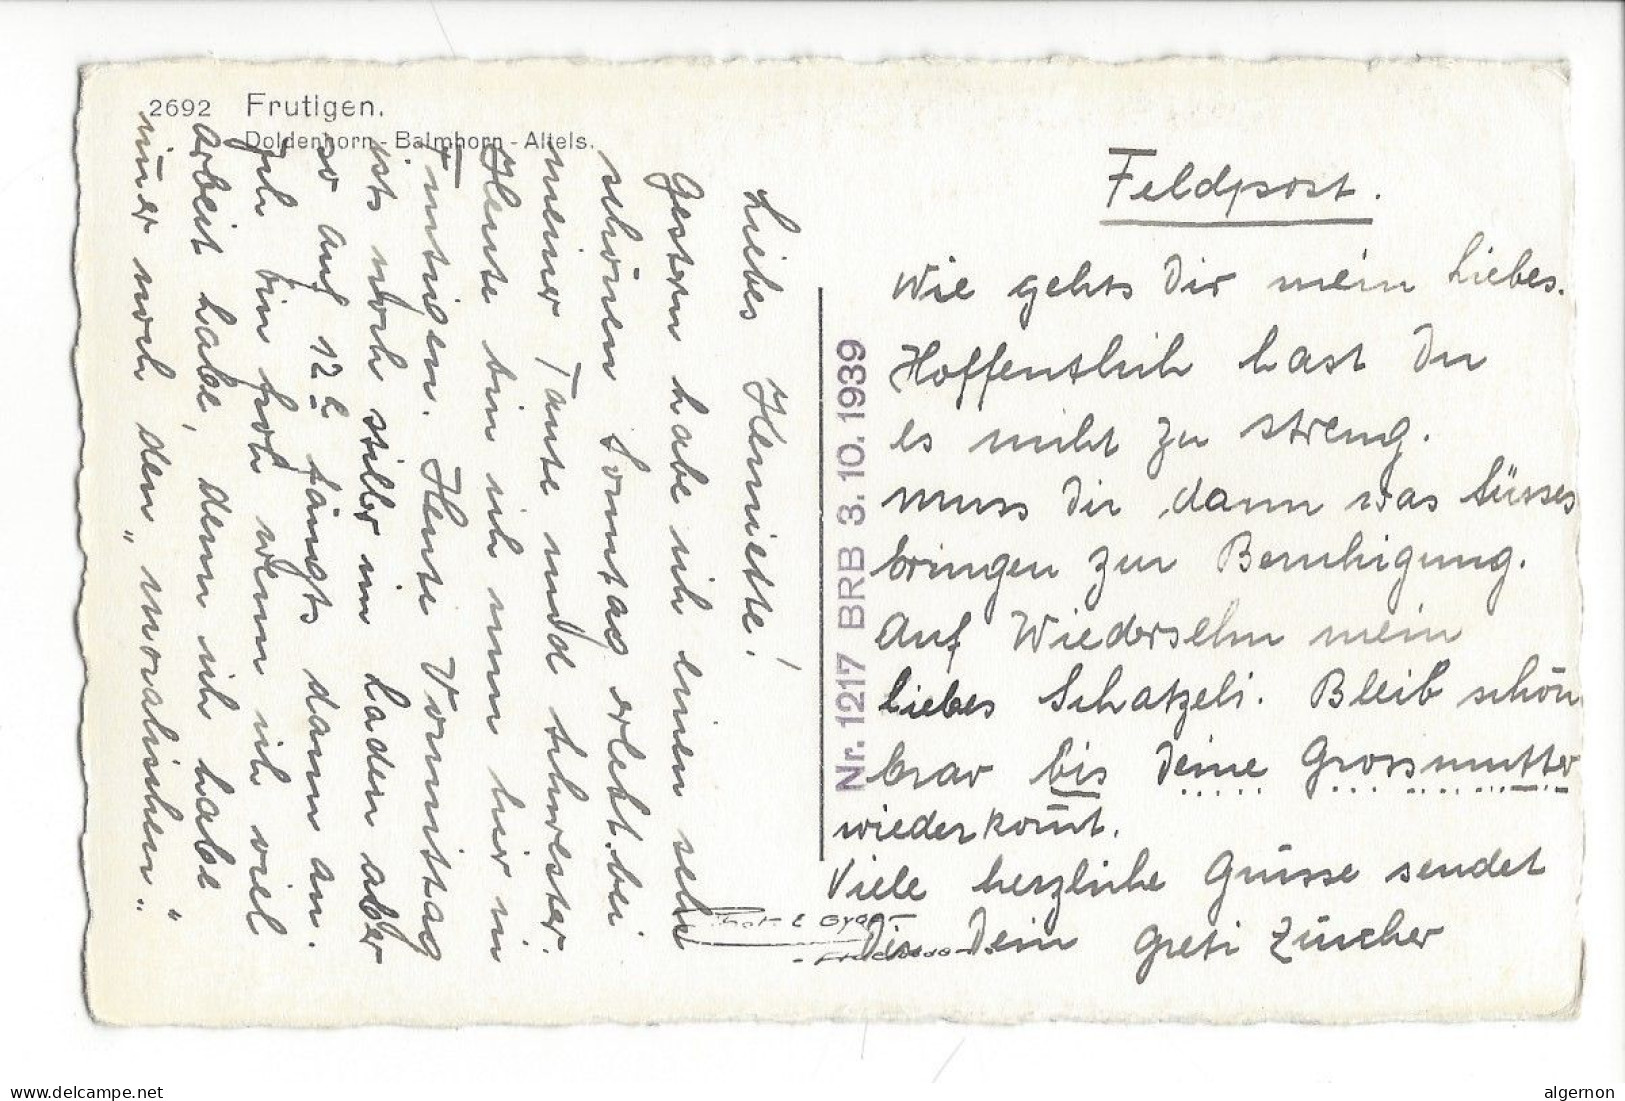 2692 Frutigen.
Doldenhorn - Balmhorn - Altels.
Liebes Henriette!
Gestern habe ich einen sehr
schönen Sonntag erlebt bei
meiner Tante und Schwester.
Heute bin ich nun hier in
Frutigen. Heute Vormittag
ists noch stiller im Laden aber
so auf 12h fängts dann an.
Ich bin froh wenn ich viel
Arbeit habe, denn ich habe
im̄er noch den „moralischen"
Nr. 1217 BRB 3. 10. 1939
Feldpost.
Wie gehts Dir mein Liebes.
Hoffentlich hast Du
es nicht zu streng.
muss Dir dann was Süsses
bringen zur Beruhigung.
Auf Wiedersehn mein
liebes Schatzeli. Bleib schön
brav bis Deine Grossmutter
wieder kom̄t.
Viele herzliche Grüsse sendet
Dir Dein Greti Zürcher
Phot. E. Gyger